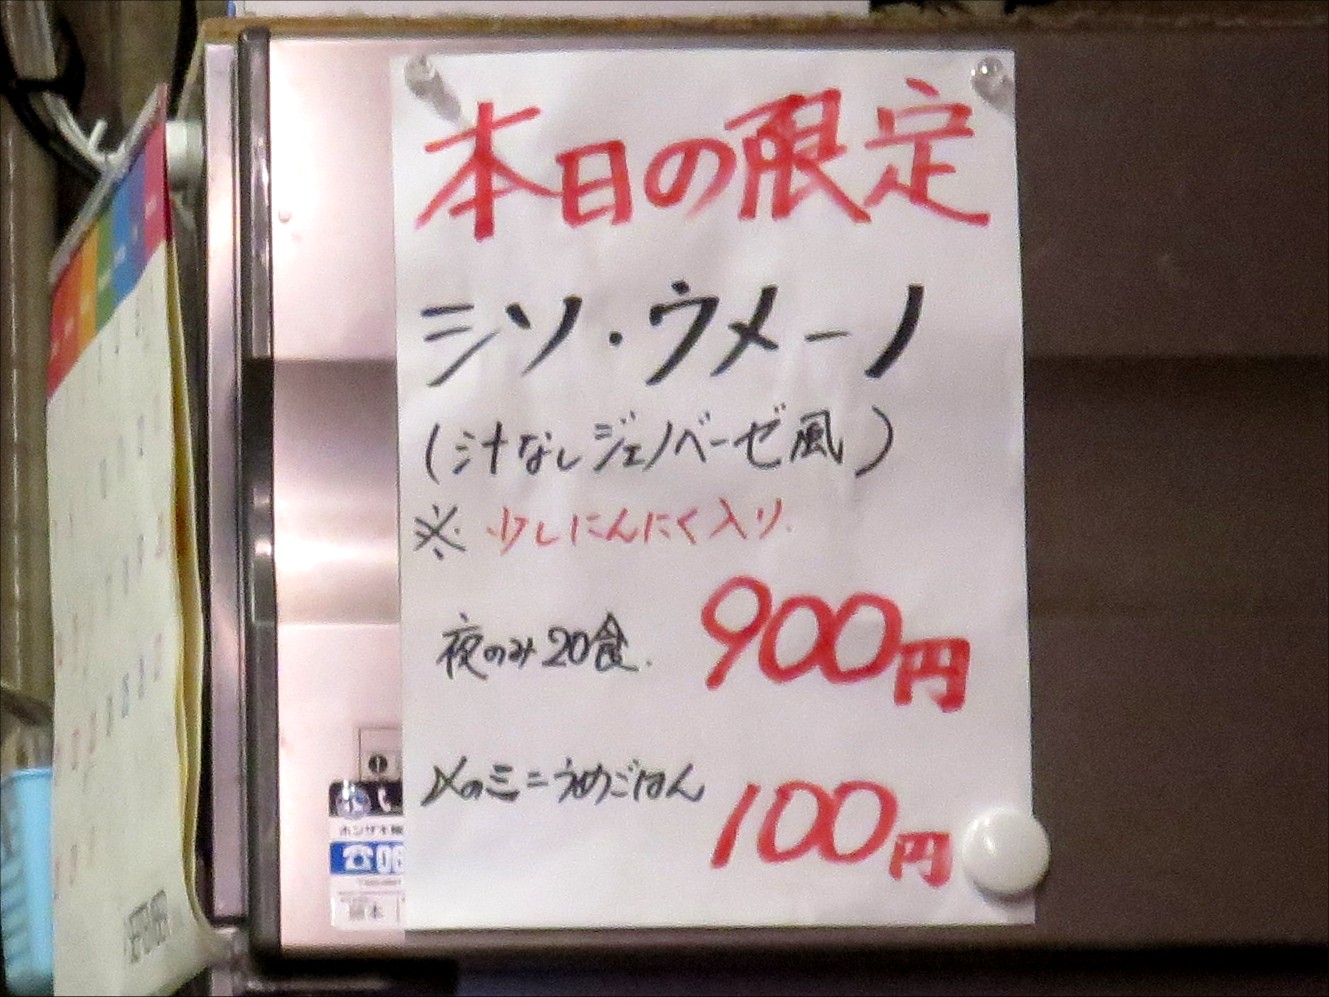 本日の限定
シソ・ウメーノ
(汁なしジェノベーゼ風)
※ 少しにんにく入り.
夜のみ20食. 900円
〆のミニうめごはん 100円
ホシザキ
☎06